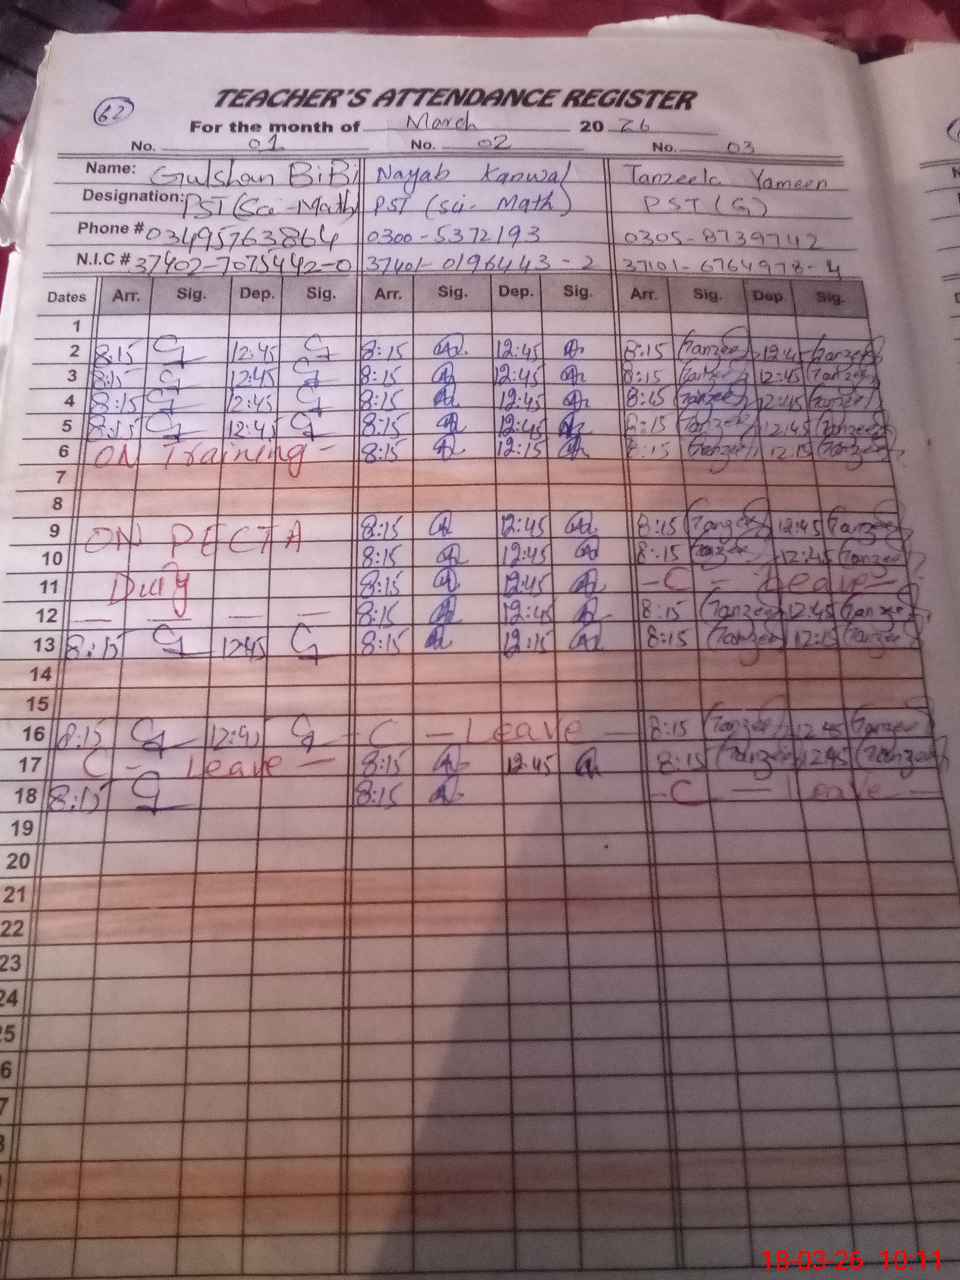 62
TEACHER'S ATTENDANCE REGISTER
For the month of March 2026
No. 01 No. 02 No. 03
Name: Gulshan BiBi Nayab Kanwal Tanzeela Yameen
Designation: PST (Sci-Math) PST (Sci-Math) PST (G)
Phone # 03495763864 0300-5372193 0305-8739742
N.I.C # 37402-7075442-0 37401-0196443-2 37101-6764978-4
Dates Arr. Sig. Dep. Sig. Arr. Sig. Dep. Sig. Arr. Sig. Dep. Sig.
1
2 8:15 12:45 8:15 12:45 8:15 Tanzee 12:45 Tanzee
3 8:15 12:45 8:15 12:45 8:15 Tanzee 12:45 Tanzee
4 8:15 12:45 8:15 12:45 8:15 Tanzee 12:45 Tanzee
5 8:15 12:45 8:15 12:45 8:15 Tanzee 12:45 Tanzee
6 ON Training - 8:15 12:15 8:15 Tanzee 12:15 Tanzee
7
8
9 ON PECTA 8:15 12:45 8:15 Tanzee 12:45 Tanzee
10 8:15 12:45 8:15 Tanzee 12:45 Tanzee
11 Duty 8:15 12:45 - C - Leave -
12 — — — — 8:15 12:45 8:15 Tanzee 12:45 Tanzee
13 8:15 12:45 8:15 12:15 8:15 Tanzee 12:15 Tanzee
14
15
16 8:15 12:45 - C - Leave - 8:15 Tanzee 12:45 Tanzee
17 C - Leave - 8:15 12:45 8:15 Tanzee 12:45 Tanzee
18 8:15 8:15 - C - Leave -
19
20
21
22
23
24
25
6
7
8
18-03-26 10:11